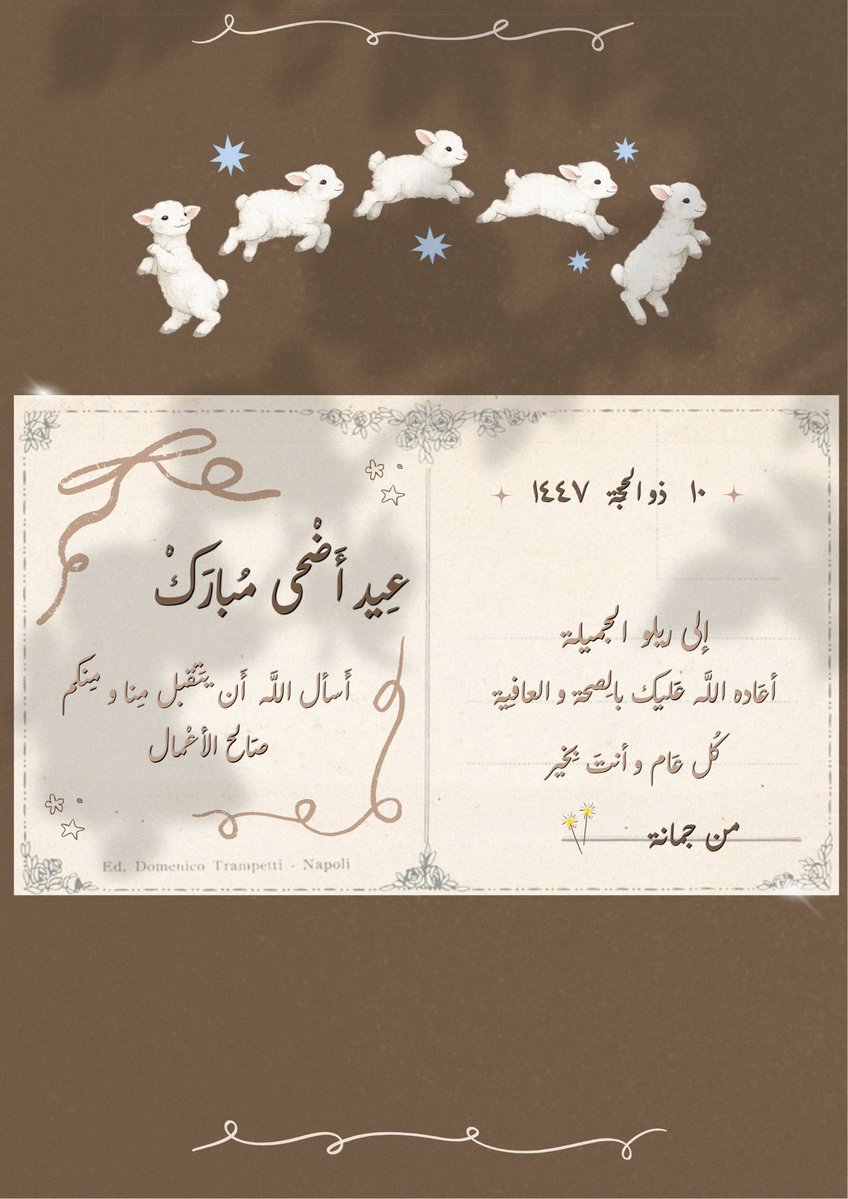 ١٠ ذو الحجة ١٤٤٧
عِيد أَضْحى مُبارَكْ
أَسأل اللَّه أَن يتَقبل مِنا و مِنكم
صَالح الأعْمال
إلى ريلو الجميلة
أعَاده اللَّه عَليك بالِصحة و العافِية
كُل عَام و أنتَ بِخير
من جمانة
Ed. Domenico Trampetti - Napoli